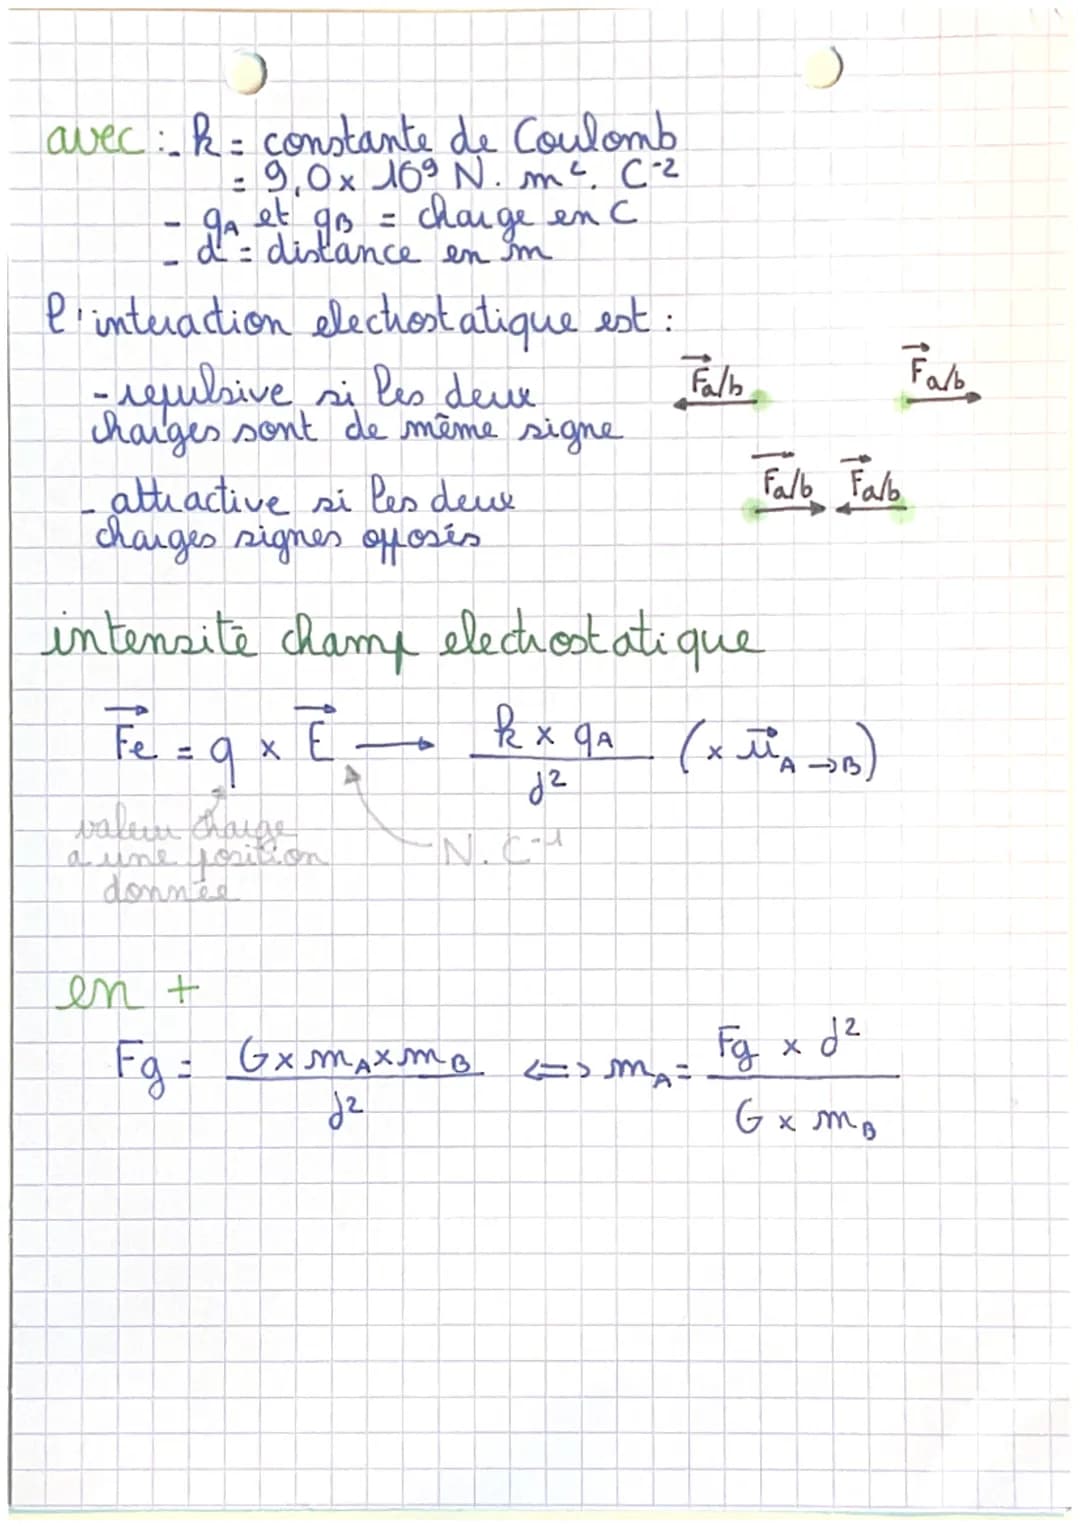 avec : - k = constante de Coulomb
= 9,0 x 10⁹ N. m². C⁻²
- qA et qB = charge en C
- d = distance en m
l'interaction electrostatique est :
- repulsive si les deux
charges sont de même signe
Fa/b Fa/b
- attractive si les deux
charges signes opposés
Fa/b Fa/b
intensité champ electrostatique
Fe = q x E → k x qA / d² (x u A→B)
valeur charge
a une position
donnée
N. C⁻¹
en +
Fg = G x mA x mB / d² <=> mA = Fg x d² / G x mB